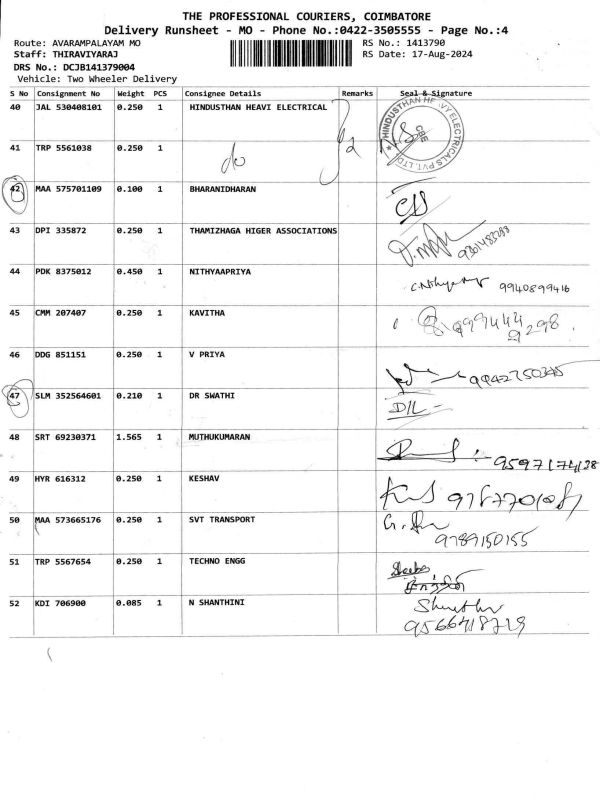 THE PROFESSIONAL COURIERS, COIMBATORE
Delivery Runsheet - MO - Phone No.:0422-3505555 - Page No.:4
Route: AVARAMPALAYAM MO
RS No.: 1413790
Staff: THIRAVIYARAJ
RS Date: 17-Aug-2024
DRS No.: DCJB141379004
Vehicle: Two Wheeler Delivery
S No Consignment No Weight PCS Consignee Details Remarks Seal & Signature
40 JAL 530408101 0.250 1 HINDUSTHAN HEAVI ELECTRICAL
HINDUSTHAN HEAVY ELECTRICALS PVT. LTD. CBE
41 TRP 5561038 0.250 1 do
42 MAA 575701109 0.100 1 BHARANIDHARAN
43 DPI 335872 0.250 1 THAMIZHAGA HIGER ASSOCIATIONS
44 PDK 8375012 0.450 1 NITHYAAPRIYA 9940899416
45 CMM 207407 0.250 1 KAVITHA 999444
9298
46 DDG 851151 0.250 1 V PRIYA 9942750345
47 SLM 352564601 0.210 1 DR SWATHI D/L
48 SRT 69230371 1.565 1 MUTHUKUMARAN 9597174138
49 HYR 616312 0.250 1 KESHAV
50 MAA 573665176 0.250 1 SVT TRANSPORT
9789150155
51 TRP 5567654 0.250 1 TECHNO ENGG
52 KDI 706900 0.085 1 N SHANTHINI
9566418729